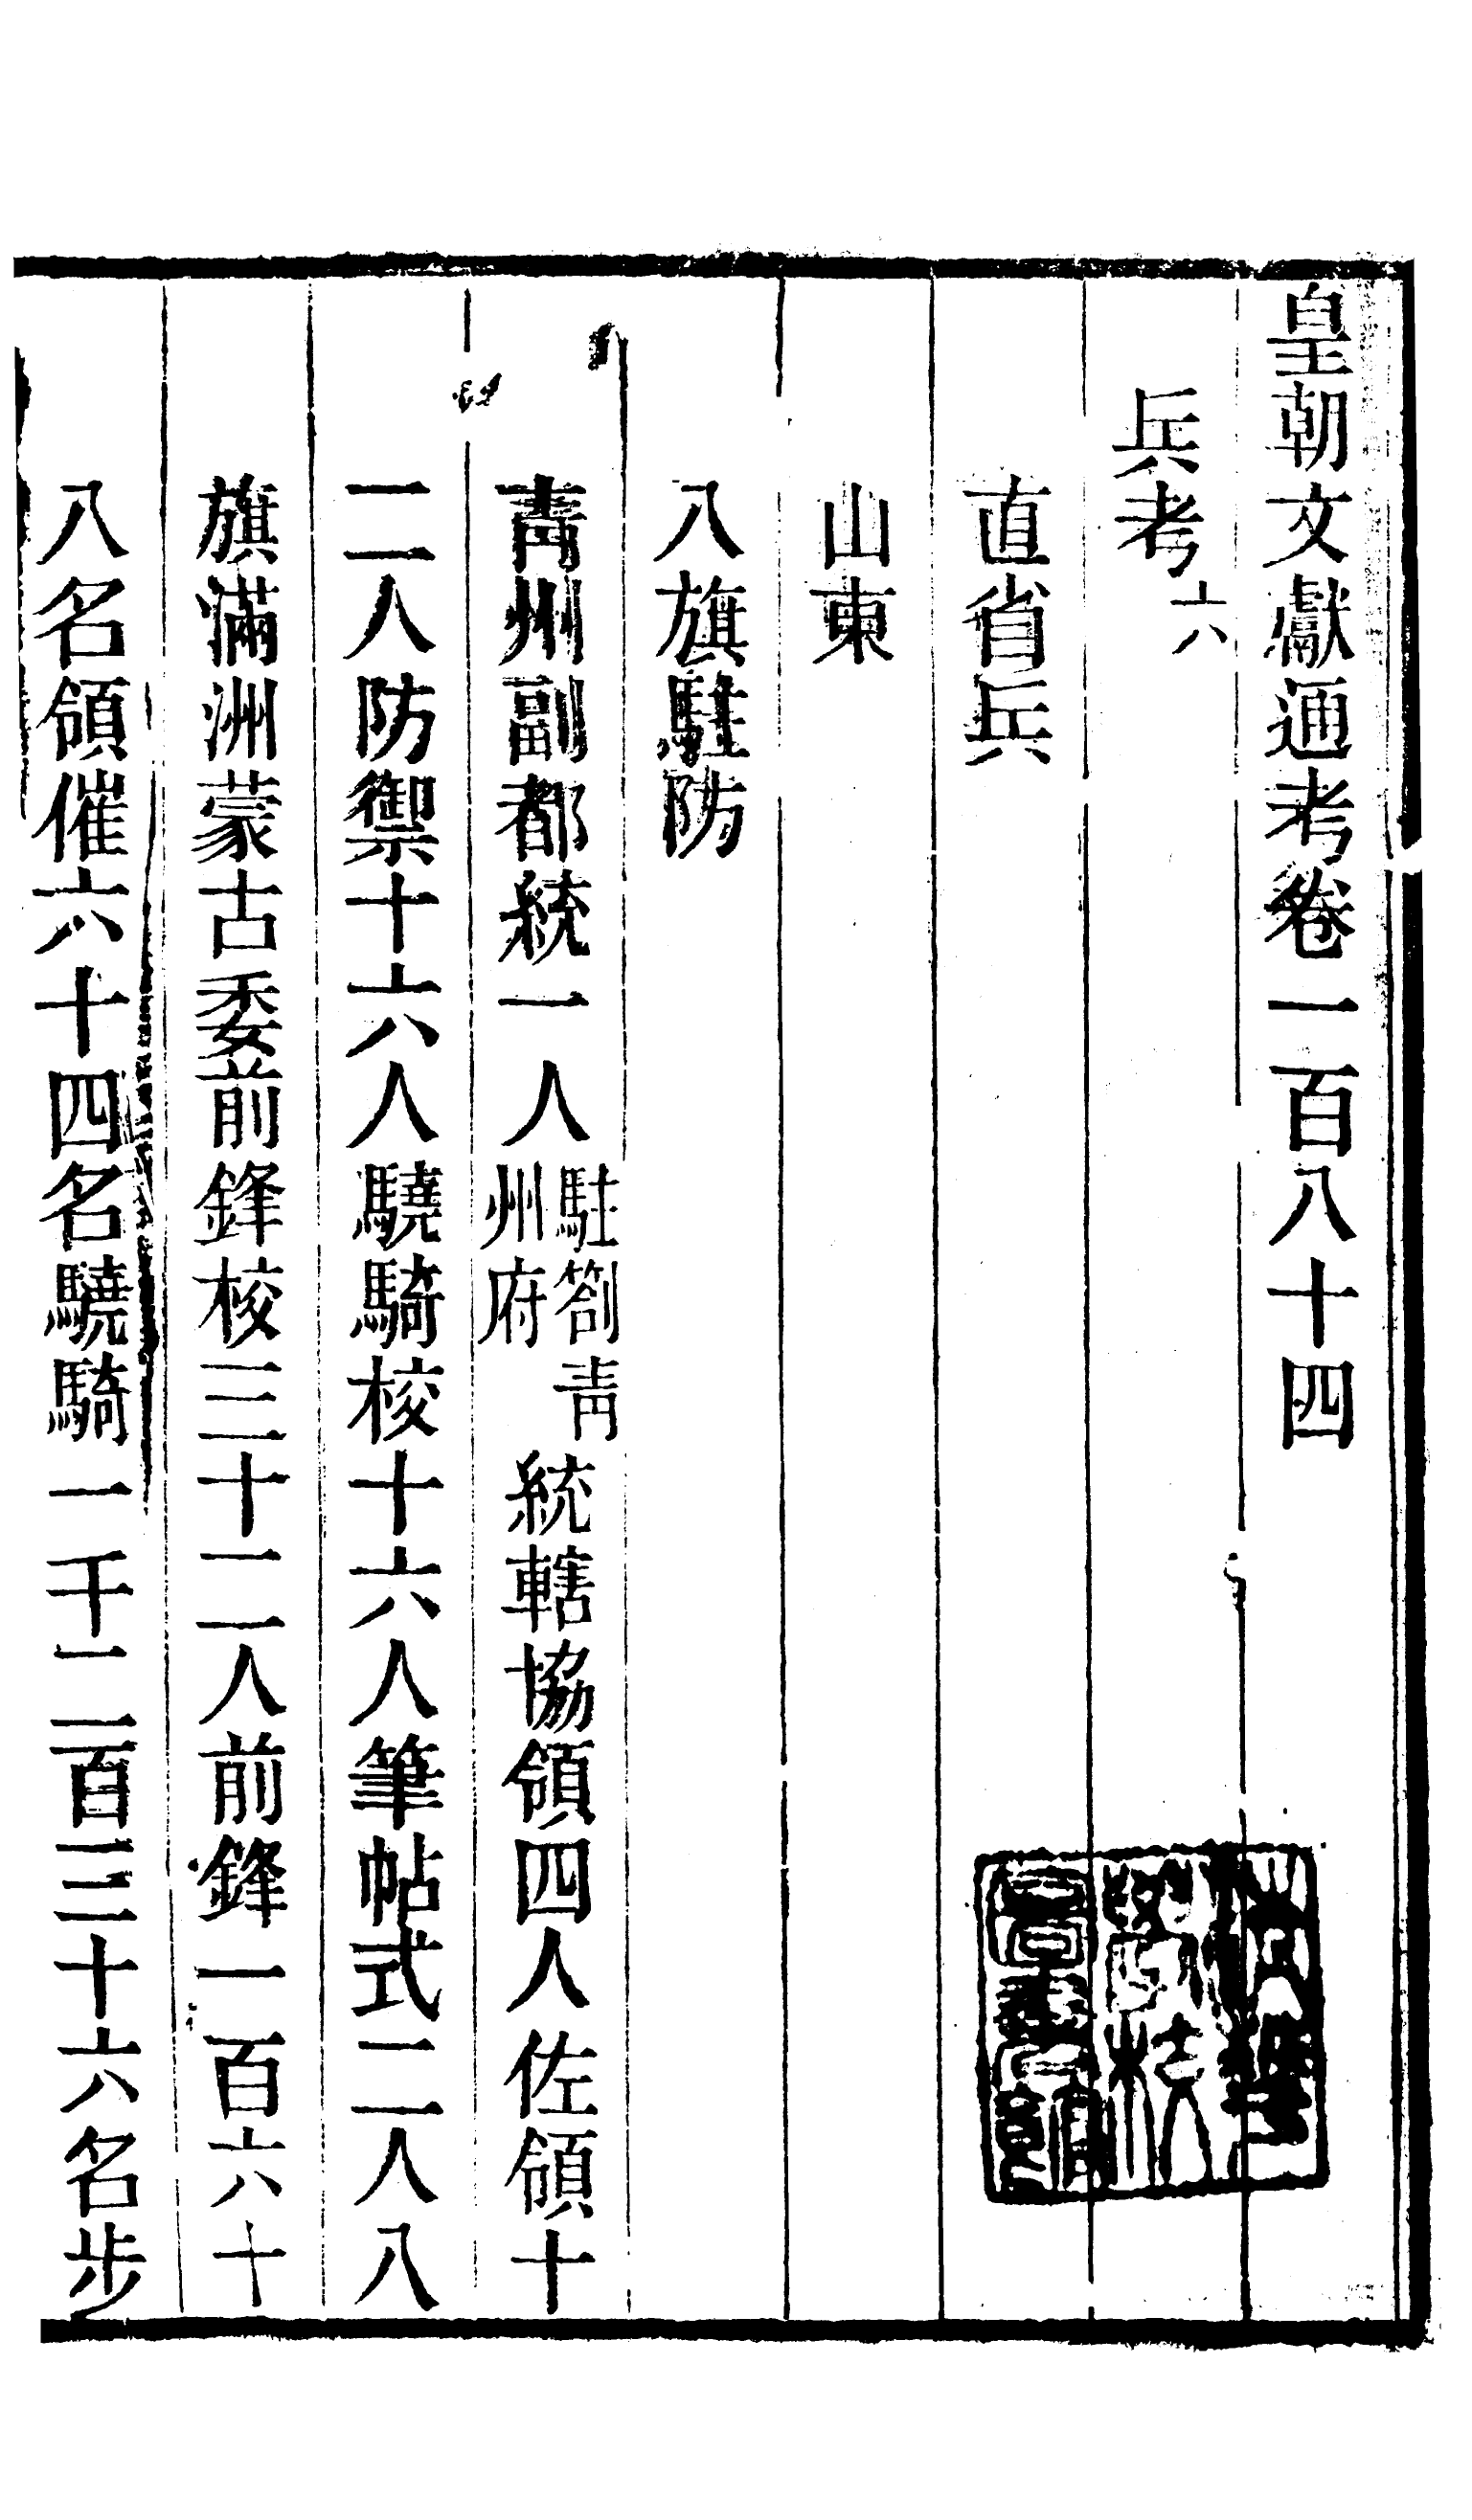 皇朝文獻通考卷一百八十四
兵考六
直省兵
山東
八旗駐防
靑州副都統一人駐劄靑州府統轄協領四人佐領十
二人防禦十六人驍騎校十六人筆帖式二人八
旗滿洲蒙古委前鋒校三十二人前鋒一百六十
八名領催六十四名驍騎一千二百三十六名步